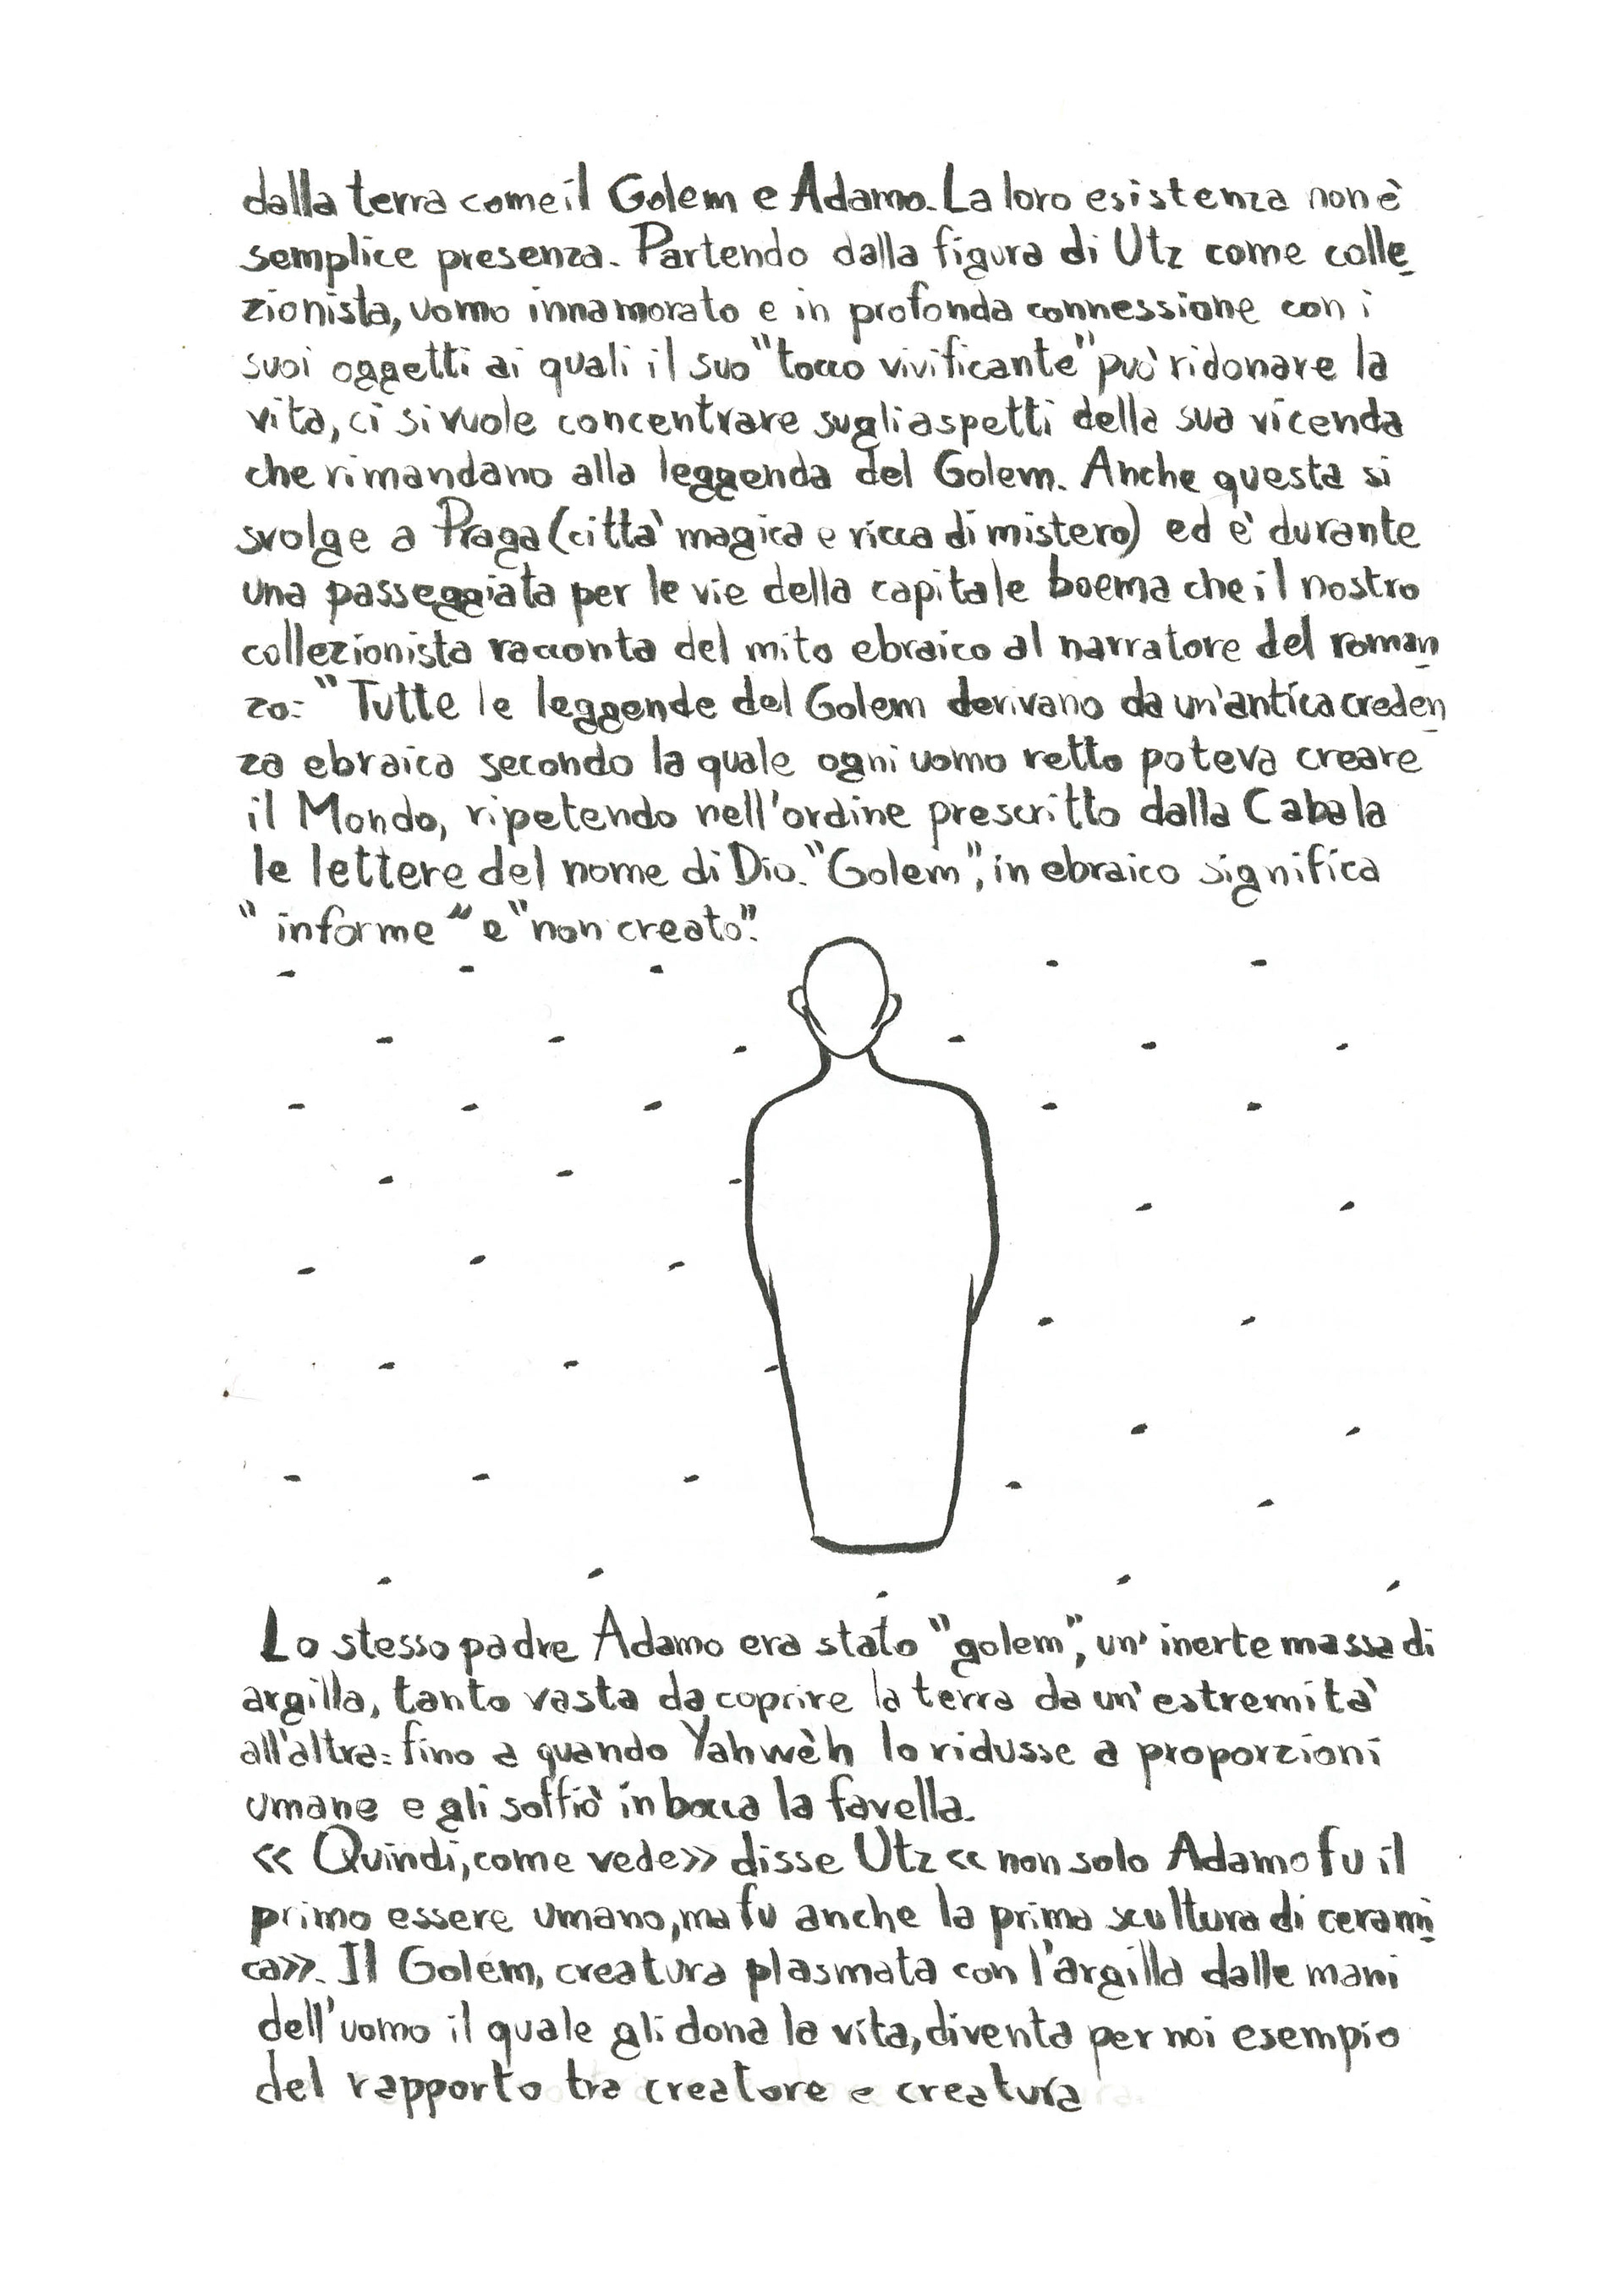 dalla terra come il Golem e Adamo. La loro esistenza non è
semplice presenza. Partendo dalla figura di Utz come colle
zionista, uomo innamorato e in profonda connessione con i
suoi oggetti ai quali il suo "tocco vivificante" può ridonare la
vita, ci si vuole concentrare sugli aspetti della sua vicenda
che rimandano alla leggenda del Golem. Anche questa si
svolge a Praga (città magica e ricca di mistero) ed è durante
una passeggiata per le vie della capitale boema che il nostro
collezionista racconta del mito ebraico al narratore del roman
zo: "Tutte le leggende del Golem derivano da un'antica creden
za ebraica secondo la quale ogni uomo retto poteva creare
il Mondo, ripetendo nell'ordine prescritto dalla Cabala
le lettere del nome di Dio. "Golem", in ebraico significa
"informe" e "non creato".
Lo stesso padre Adamo era stato "golem", un' inerte massa di
argilla, tanto vasta da coprire la terra da un'estremità
all'altra: fino a quando Yahwèh lo ridusse a proporzioni
umane e gli soffiò in bocca la favella.
« Quindi, come vede» disse Utz « non solo Adamo fu il
primo essere umano, ma fu anche la prima scultura di cerami
ca». Il Golem, creatura plasmata con l'argilla dalle mani
dell'uomo il quale gli dona la vita, diventa per noi esempio
del rapporto tra creatore e creatura